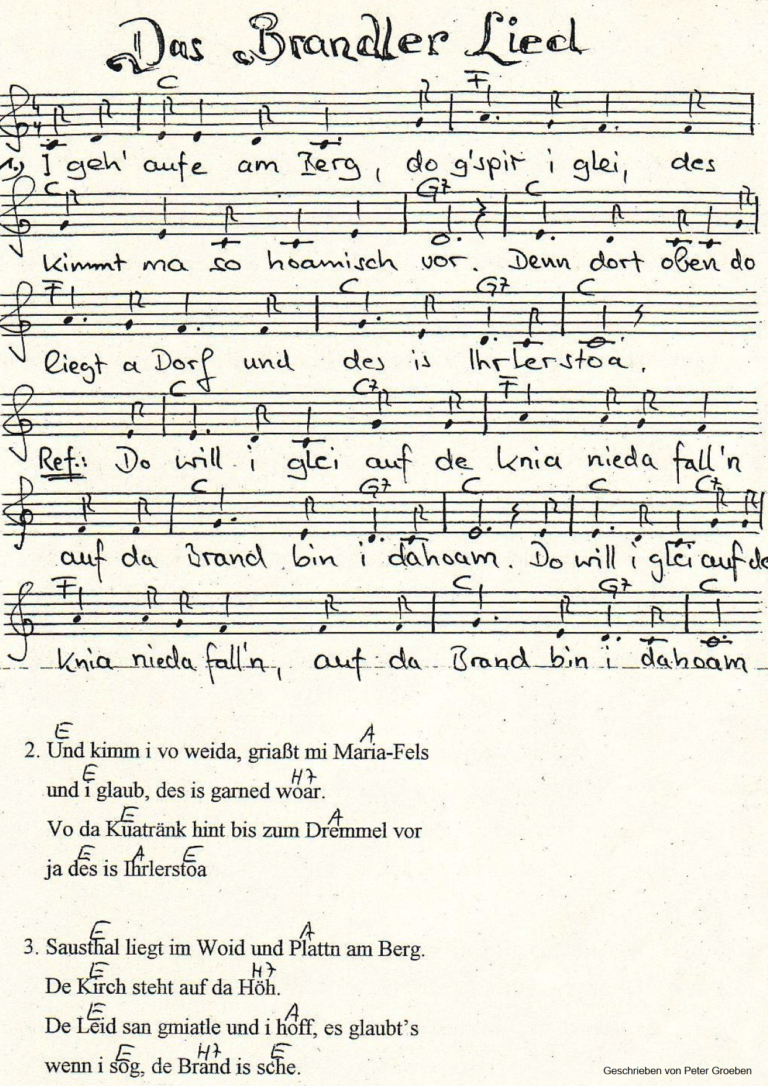 Das Brandler Lied
C F
4/4
1.) I geh' aufe am Berg, do g'spir i glei, des
C G7 C
kimmt ma so hoamisch vor. Denn dort oben do
F C G7 C
liegt a Dorf und des is Ihrlerstoa.
C C7 F
Ref.: Do will i glei auf de Knia nieda fall'n
C G7 C C C7
auf da Brand bin i dahoam. Do will i glei auf de
F C G7 C
Knia nieda fall'n, auf da Brand bin i dahoam
E A
2. Und kimm i vo weida, griaßt mi Maria-Fels
E H7
und i glaub, des is garned woar.
E A
Vo da Kuatränk hint bis zum Dremmel vor
E A E
ja des is Ihrlerstoa
E A
3. Sausthal liegt im Woid und Plattn am Berg.
E H7
De Kirch steht auf da Höh.
E A
De Leid san gmiatle und i hoff, es glaubt's
E H7 E
wenn i sog, de Brand is sche.
Geschrieben von Peter Groeben